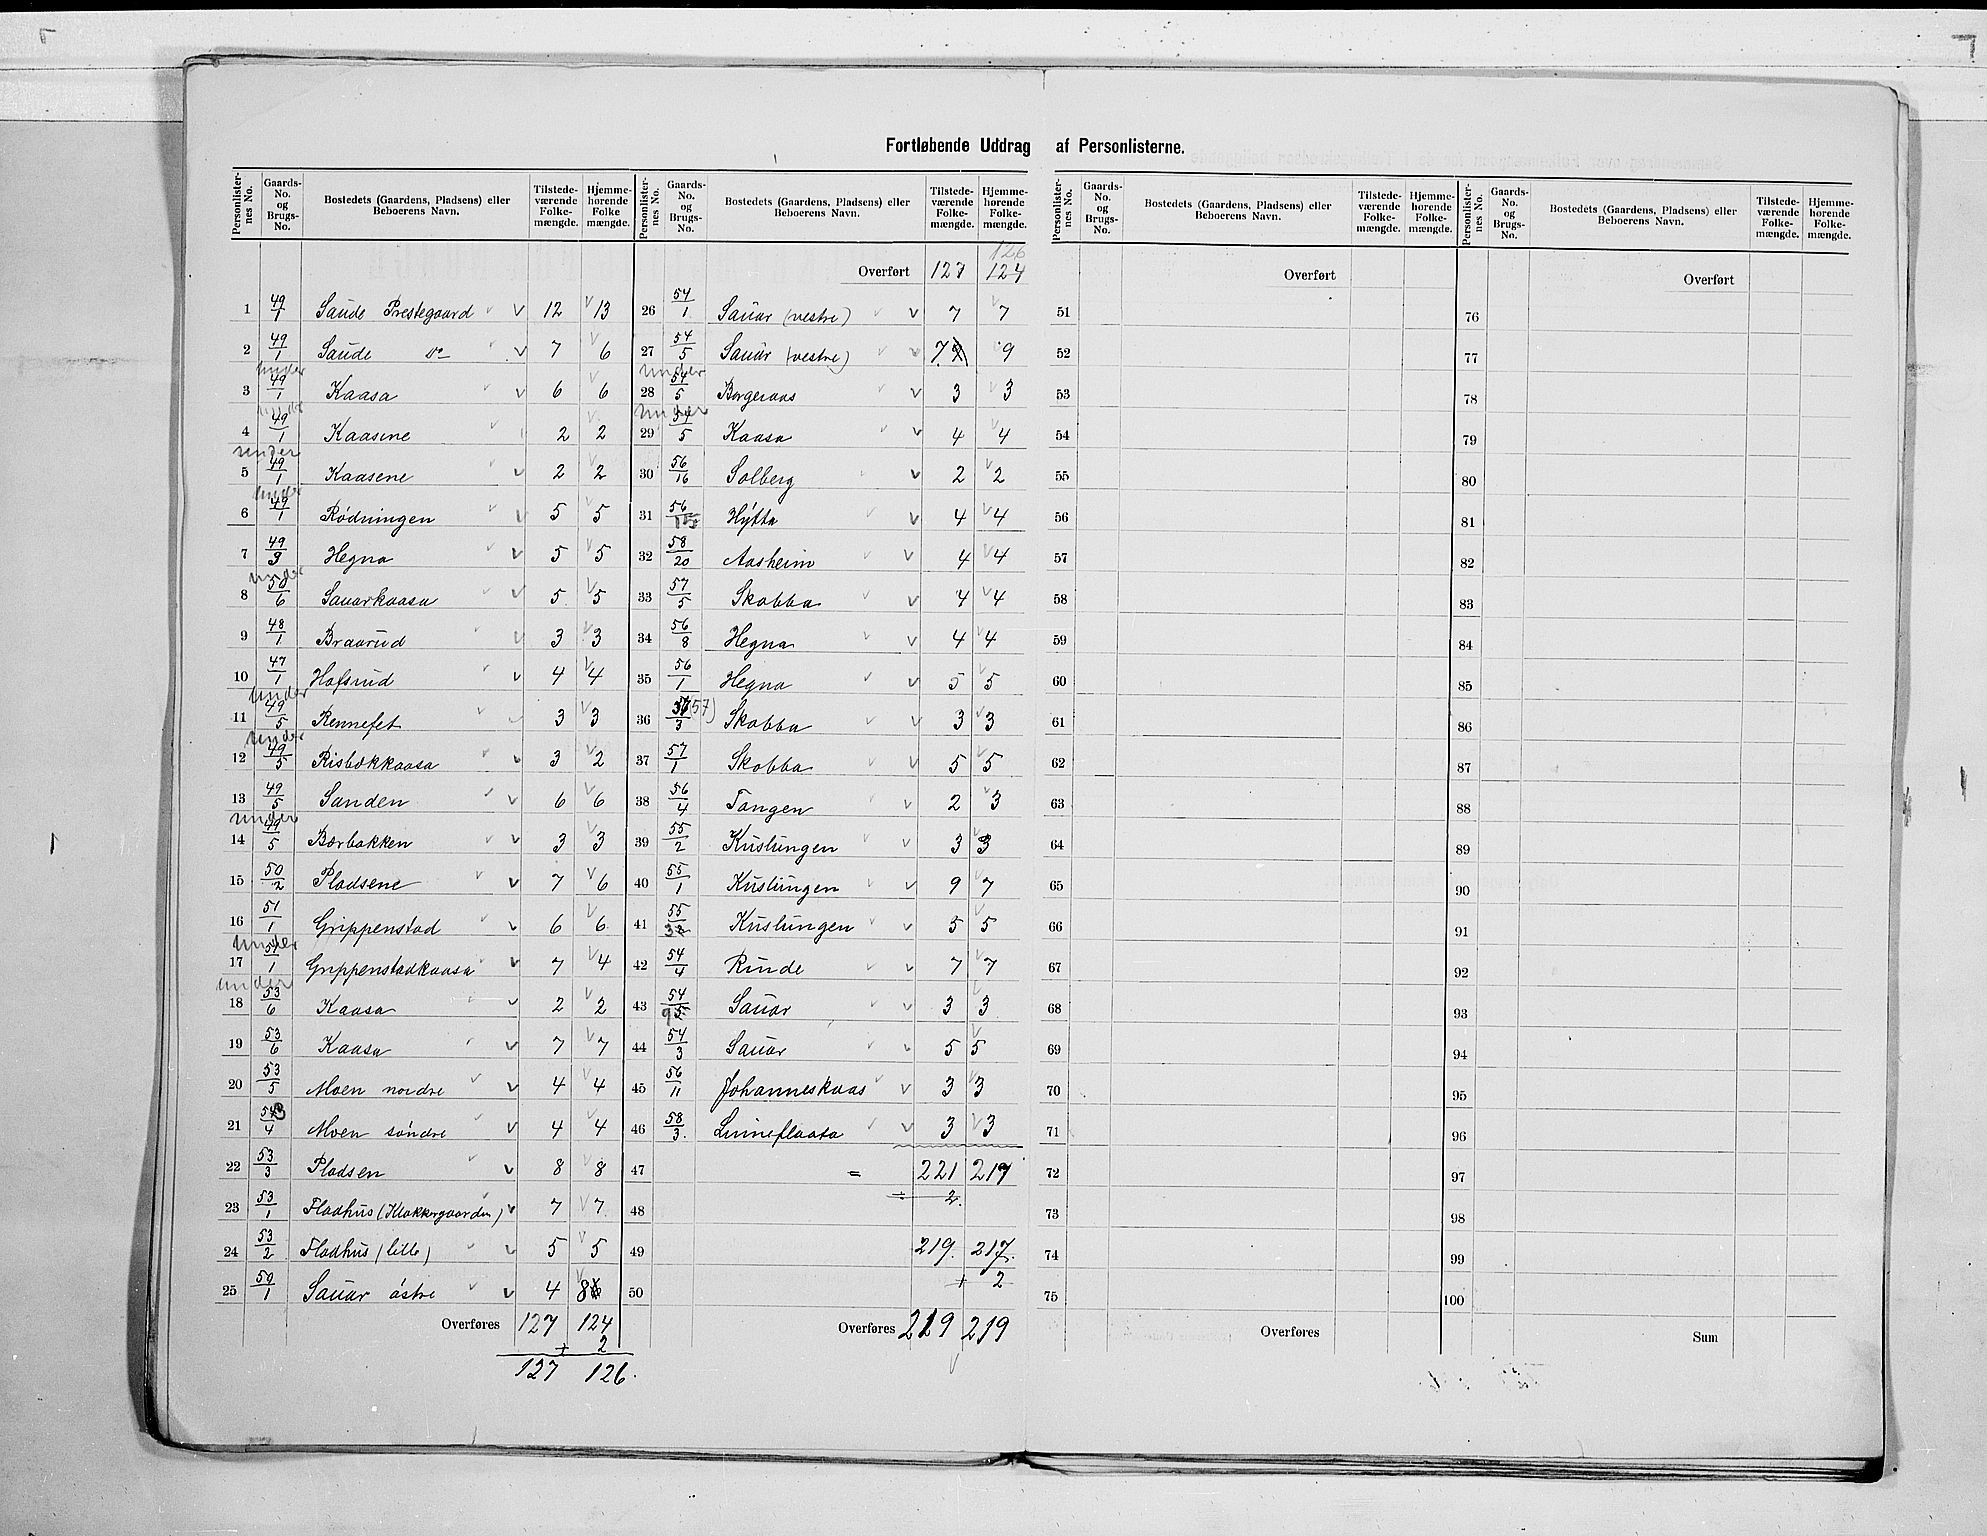 Fortløbende Uddrag af Personlisterne.
Personlisternes No. Gaards-No. og Brugs-No. Bostedets (Gaardens, Pladsens) eller Beboerens Navn. Tilstedeværende Folkemængde. Hjemmehørende Folkemængde.
1 49/1 Saude Prestegaard v 12 13
2 49/1 Saude do v 7 6
3 under 49/1 Kaasa v 6 6
4 under 49/1 Kaasene 2 2
5 under 49/1 Kaasene v 2 2
6 under 49/1 Rødningen v 5 5
7 49/3 Hegna v 5 5
8 under 50/6 Sauarkaasa v 5 5
9 48/1 Braarud v 3 3
10 47/1 Hafsrud v 4 4
11 under 49/5 Rennefet v 3 3
12 under 49/5 Risbækkaasa v 3 2
13 49/5 Sanden v 6 6
14 under 49/5 Bærbakken v 3 3
15 50/2 Pladsene v 7 6
16 51/1 Grippenstad v 6 6
17 under 51/1 Grippenstadkaasa v 7 4
18 under 53/6 Kaasa v 2 2
19 53/6 Kaasa v 7 7
20 53/5 Moen nordre v 4 4
21 53/4 Moen søndre v 4 4
22 53/3 Pladsen v 8 8
23 53/1 Fladhus (Klokkergaarden) v 7 7
24 53/2 Fladhus (lille) v 5 5
25 50/1 Sauar østre v 4 8
Overføres 127 124
+ 2
127 126.
Personlisternes No. Gaards-No. og Brugs-No. Bostedets (Gaardens, Pladsens) eller Beboerens Navn. Tilstedeværende Folkemængde. Hjemmehørende Folkemængde.
126
Overført 127 124
26 54/1 Sauar (vestre) v 7 7
27 54/5 Sauar (vestre) v 7 9 9
28 under 54/5 Borgeraas v 3 3
29 under 54/5 Kaasa v 4 4
30 56/16 Solberg v 2 2
31 56 Hytta v 4 4
32 58/20 Aasheim v 4 4
33 57/5 Skobba v 4 4
34 56/8 Hegna v 4 4
35 56/1 Hegna v 5 5
36 (57)/3 Skobba v 3 3
37 57/1 Skobba v 5 5
38 56/4 Tangen v 2 3
39 55/2 Kuslungen v 3 3
40 55/1 Kuslungen v 9 7
41 55/3 Kuslungen v 5 5
42 54/4 Rinde v 7 7
43 54/5 9 Sauar v 3 3
44 54/3 Sauar v 5 5
45 56/11 Johanneskaas v 3 3
46 58/3. Linneflaata v 3 3
47 = 221 217
÷ 2.
48
49 219. 217.
+ 2
50
Overføres 219 219
v
Personlisternes No. Gaards-No. og Brugs-No. Bostedets (Gaardens, Pladsens) eller Beboerens Navn. Tilstedeværende Folkemængde. Hjemmehørende Folkemængde.
Overført
51
52
53
54
55
56
57
58
59
60
61
62
63
64
65
66
67
68
69
70
71
72
73
74
75
Overføres
Personlisternes No. Gaards-No. og Brugs-No. Bostedets (Gaardens, Pladsens) eller Beboerens Navn. Tilstedeværende Folkemængde. Hjemmehørende Folkemængde.
Overført
76
77
78
79
80
81
82
83
84
85
86
87
88
89
90
91
92
93
94
95
96
97
98
99
100
Sum